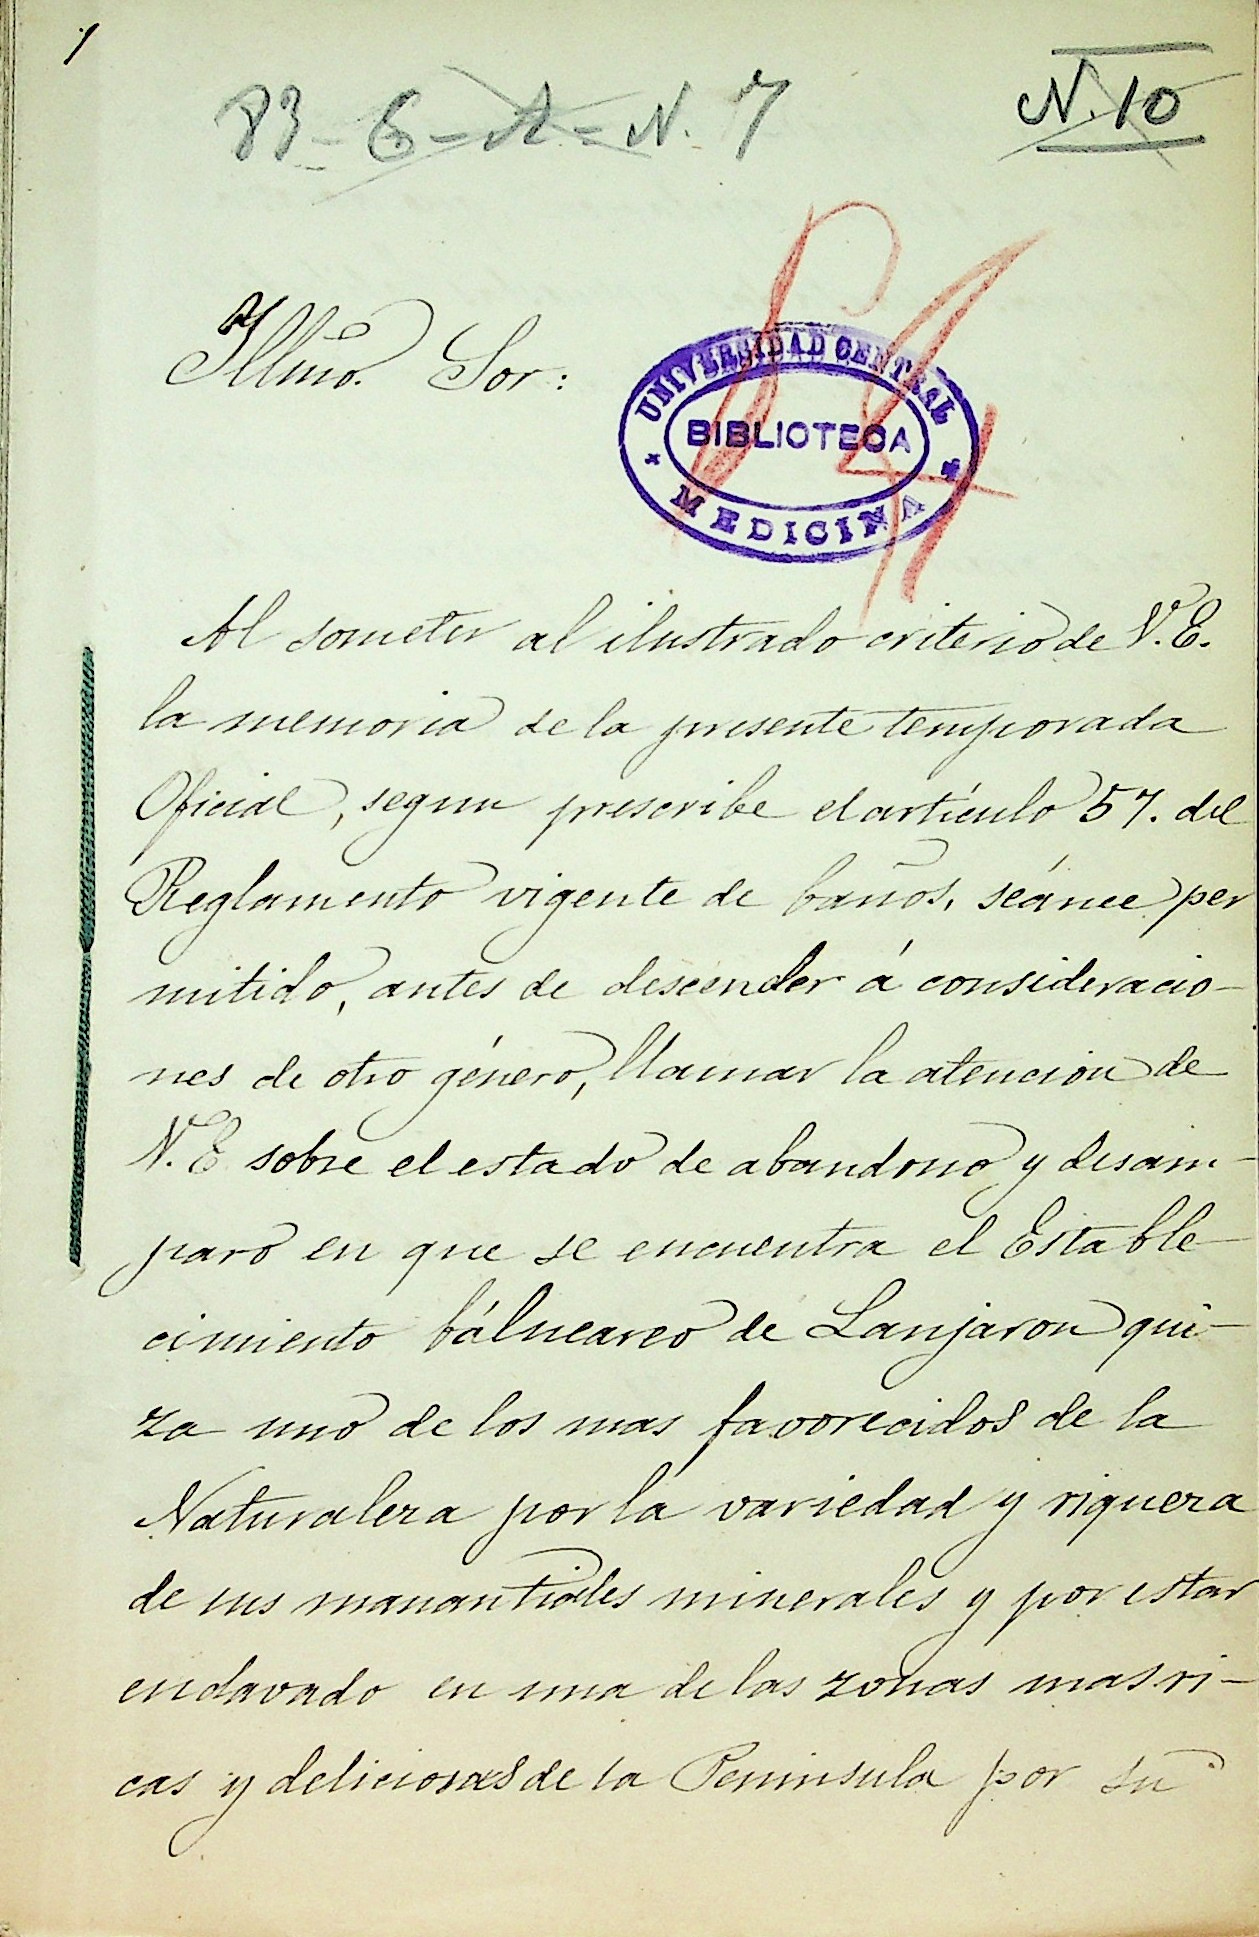 1
83-6-A=N. 7
N. 10
Illmo. Sor:
UNIVERSIDAD CENTRAL
BIBLIOTECA
MEDICINA
Al someter al ilustrado criterio de V.E.
la memoria de la presente temporada
Oficial, segun prescribe el artículo 57. del
Reglamento vigente de baños, séame per
mitido, antes de descender á consideracio-
nes de otro género, llamar la atencion de
V.E sobre el estado de abandono y desam-
paro en que se encuentra el Estable-
cimiento bálneareo de Lanjaron qui-
za uno de los mas favorecidos de la
Naturaleza por la variedad y riqueza
de sus manantiales minerales y por estar
enclavado en una de las zonas mas ri-
cas y deliciosas de la Peninsula por su